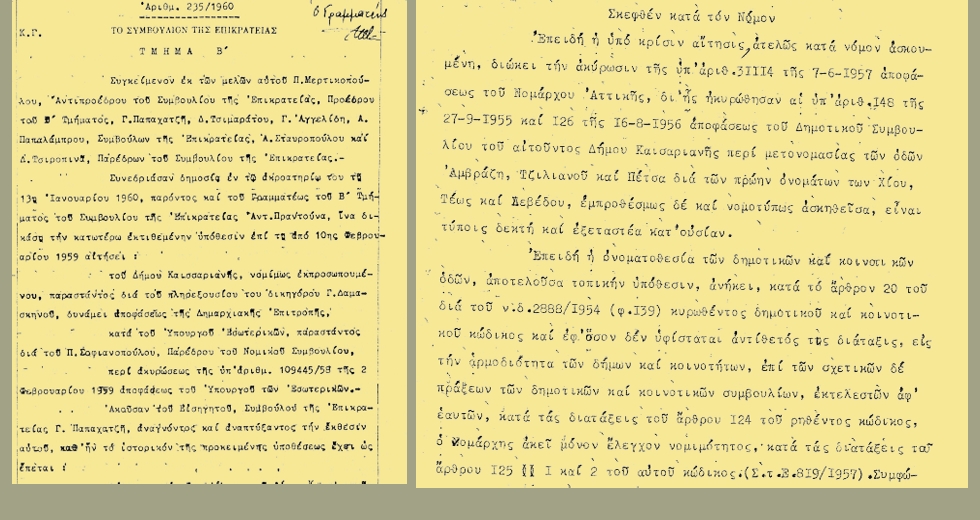 Ἀριθμ. 235/1960
ὁ Γραμματεύς
Κ.Γ.
ΤΟ ΣΥΜΒΟΥΛΙΟΝ ΤΗΣ ΕΠΙΚΡΑΤΕΙΑΣ
ΤΜΗΜΑ Β΄
Συγκείμενον ἐκ τῶν μελῶν αὐτοῦ Π.Μερτικοπού-
λου, Ἀντιπροέδρου τοῦ Συμβουλίου τῆς Ἐπικρατείας, Προέδρου
τοῦ Β΄ Τμήματος, Γ.Παπαχατζῆ, Δ.Τσιμαράτου, Γ.Ἀγγελίδη, Α.
Παπαλάμπρου, Συμβούλων τῆς Ἐπικρατείας, Ἀ.Σταυροπούλου καί
Δ.Τσιροπινᾶ, Παρέδρων τοῦ Συμβουλίου τῆς Ἐπικρατείας.-
Συνεδριάσαν δημοσίᾳ ἐν τῷ ἀκροατηρίῳ του τῇ
13ῃ Ἰανουαρίου 1960, παρόντος καί τοῦ Γραμματέως τοῦ Β΄ Τμή-
ματος τοῦ Συμβουλίου τῆς Ἐπικρατείας Ἀντ.Πραντούνα, ἵνα δι-
κάσῃ τήν κατωτέρω ἐκτιθεμένην ὑπόθεσιν ἐπί τῇ ἀπό 10ης Φεβρου-
αρίου 1959 αἰτήσει :
τοῦ Δήμου Καισσαριανῆς, νομίμως ἐκπροσωπουμέ-
νου, παραστάντος διά τοῦ πληρεξουσίου του δικηγόρου Γ.Δαμα-
σκηνοῦ, δυνάμει ἀποφάσεως τῆς Δημαρχιακῆς Ἐπιτροπῆς,
κατά τοῦ Ὑπουργοῦ Ἐσωτερικῶν, παραστάντος
διά τοῦ Π.Σοφιανοπούλου, Παρέδρου τοῦ Νομικοῦ Συμβουλίου,
περί ἀκυρώσεως τῆς ὑπ'ἀριθμ. 109445/58 τῆς 2
Φεβρουαρίου 1959 ἀποφάσεως τοῦ Ὑπουργοῦ τῶν Ἐσωτερικῶν.-
Ἀκοῦσαν τοῦ Εἰσηγητοῦ, Συμβούλου τῆς Ἐπικρα-
τείας Γ. Παπαχατζῆ, ἀναγνόντος καί ἀναπτύξαντος τήν ἔκθεσίν
αὐτοῦ, καθ'ἥν τό ἱστορικόν τῆς προκειμένης ὑποθέσεως ἔχει ὡς
ἕπεται :
Σκεφθέν κατά τόν Νόμον
Ἐπειδή ἡ ὑπό κρίσιν αἴτησις, ἀτελῶς κατά νόμον ἀσκου-
μένη, διώκει τήν ἀκύρωσιν τῆς ὑπ'ἀριθ.31114 τῆς 7-6-1957 ἀποφά-
σεως τοῦ Νομάρχου Ἀττικῆς, δι'ἧς ἠκυρώθησαν αἱ ὑπ'ἀριθ.148 τῆς
27-9-1955 καί 126 τῆς 16-8-1956 ἀποφάσεως τοῦ Δημοτικοῦ Συμβου-
λίου τοῦ αἰτοῦντος Δήμου Καισαριανῆς περί μετονομασίας τῶν ὁδῶν
Ἀμβράζη, Τζιλιανοῦ καί Πέτσα διά τῶν πρώην ὀνομάτων των Χίου,
Τέως καί Λεβέδου, ἐμπροθέσμως δέ καί νομοτύπως ἀσκηθεῖσα, εἶναι
τύποις δεκτή καί ἐξεταστέα κατ'οὐσίαν.
Ἐπειδή ἡ ὀνοματοθεσία τῶν δημοτικῶν καί κοινοτικῶν
ὁδῶν, ἀποτελοῦσα τοπικήν ὑπόθεσιν, ἀνήκει, κατά τό ἄρθρον 20 τοῦ
διά τοῦ ν.δ.2888/1954 (φ.139) κυρωθέντος δημοτικοῦ καί κοινοτι-
κοῦ κώδικος καί ἐφ'ὅσον δέν ὑφίσταται ἀντίθετός τις διάταξις, εἰς
τήν ἁρμοδιότητα τῶν δήμων καί κοινοτήτων, ἐπί τῶν σχετικῶν δέ
πράξεων τῶν δημοτικῶν καί κοινοτικῶν συμβουλίων, ἐκτελεστῶν ἀφ'
ἑαυτῶν, κατά τάς διατάξεις τοῦ ἄρθρου 124 τοῦ ρηθέντος κώδικος,
ὁ Νομάρχης ἀκεῖ μόνον ἔλεγχον νομιμότητος, κατά τάς διατάξεις τοῦ
ἄρθρου 125 §§ 1 καί 2 τοῦ αὐτοῦ κώδικος.(Σ.τ.Ε.819/1957).Συμφώ-